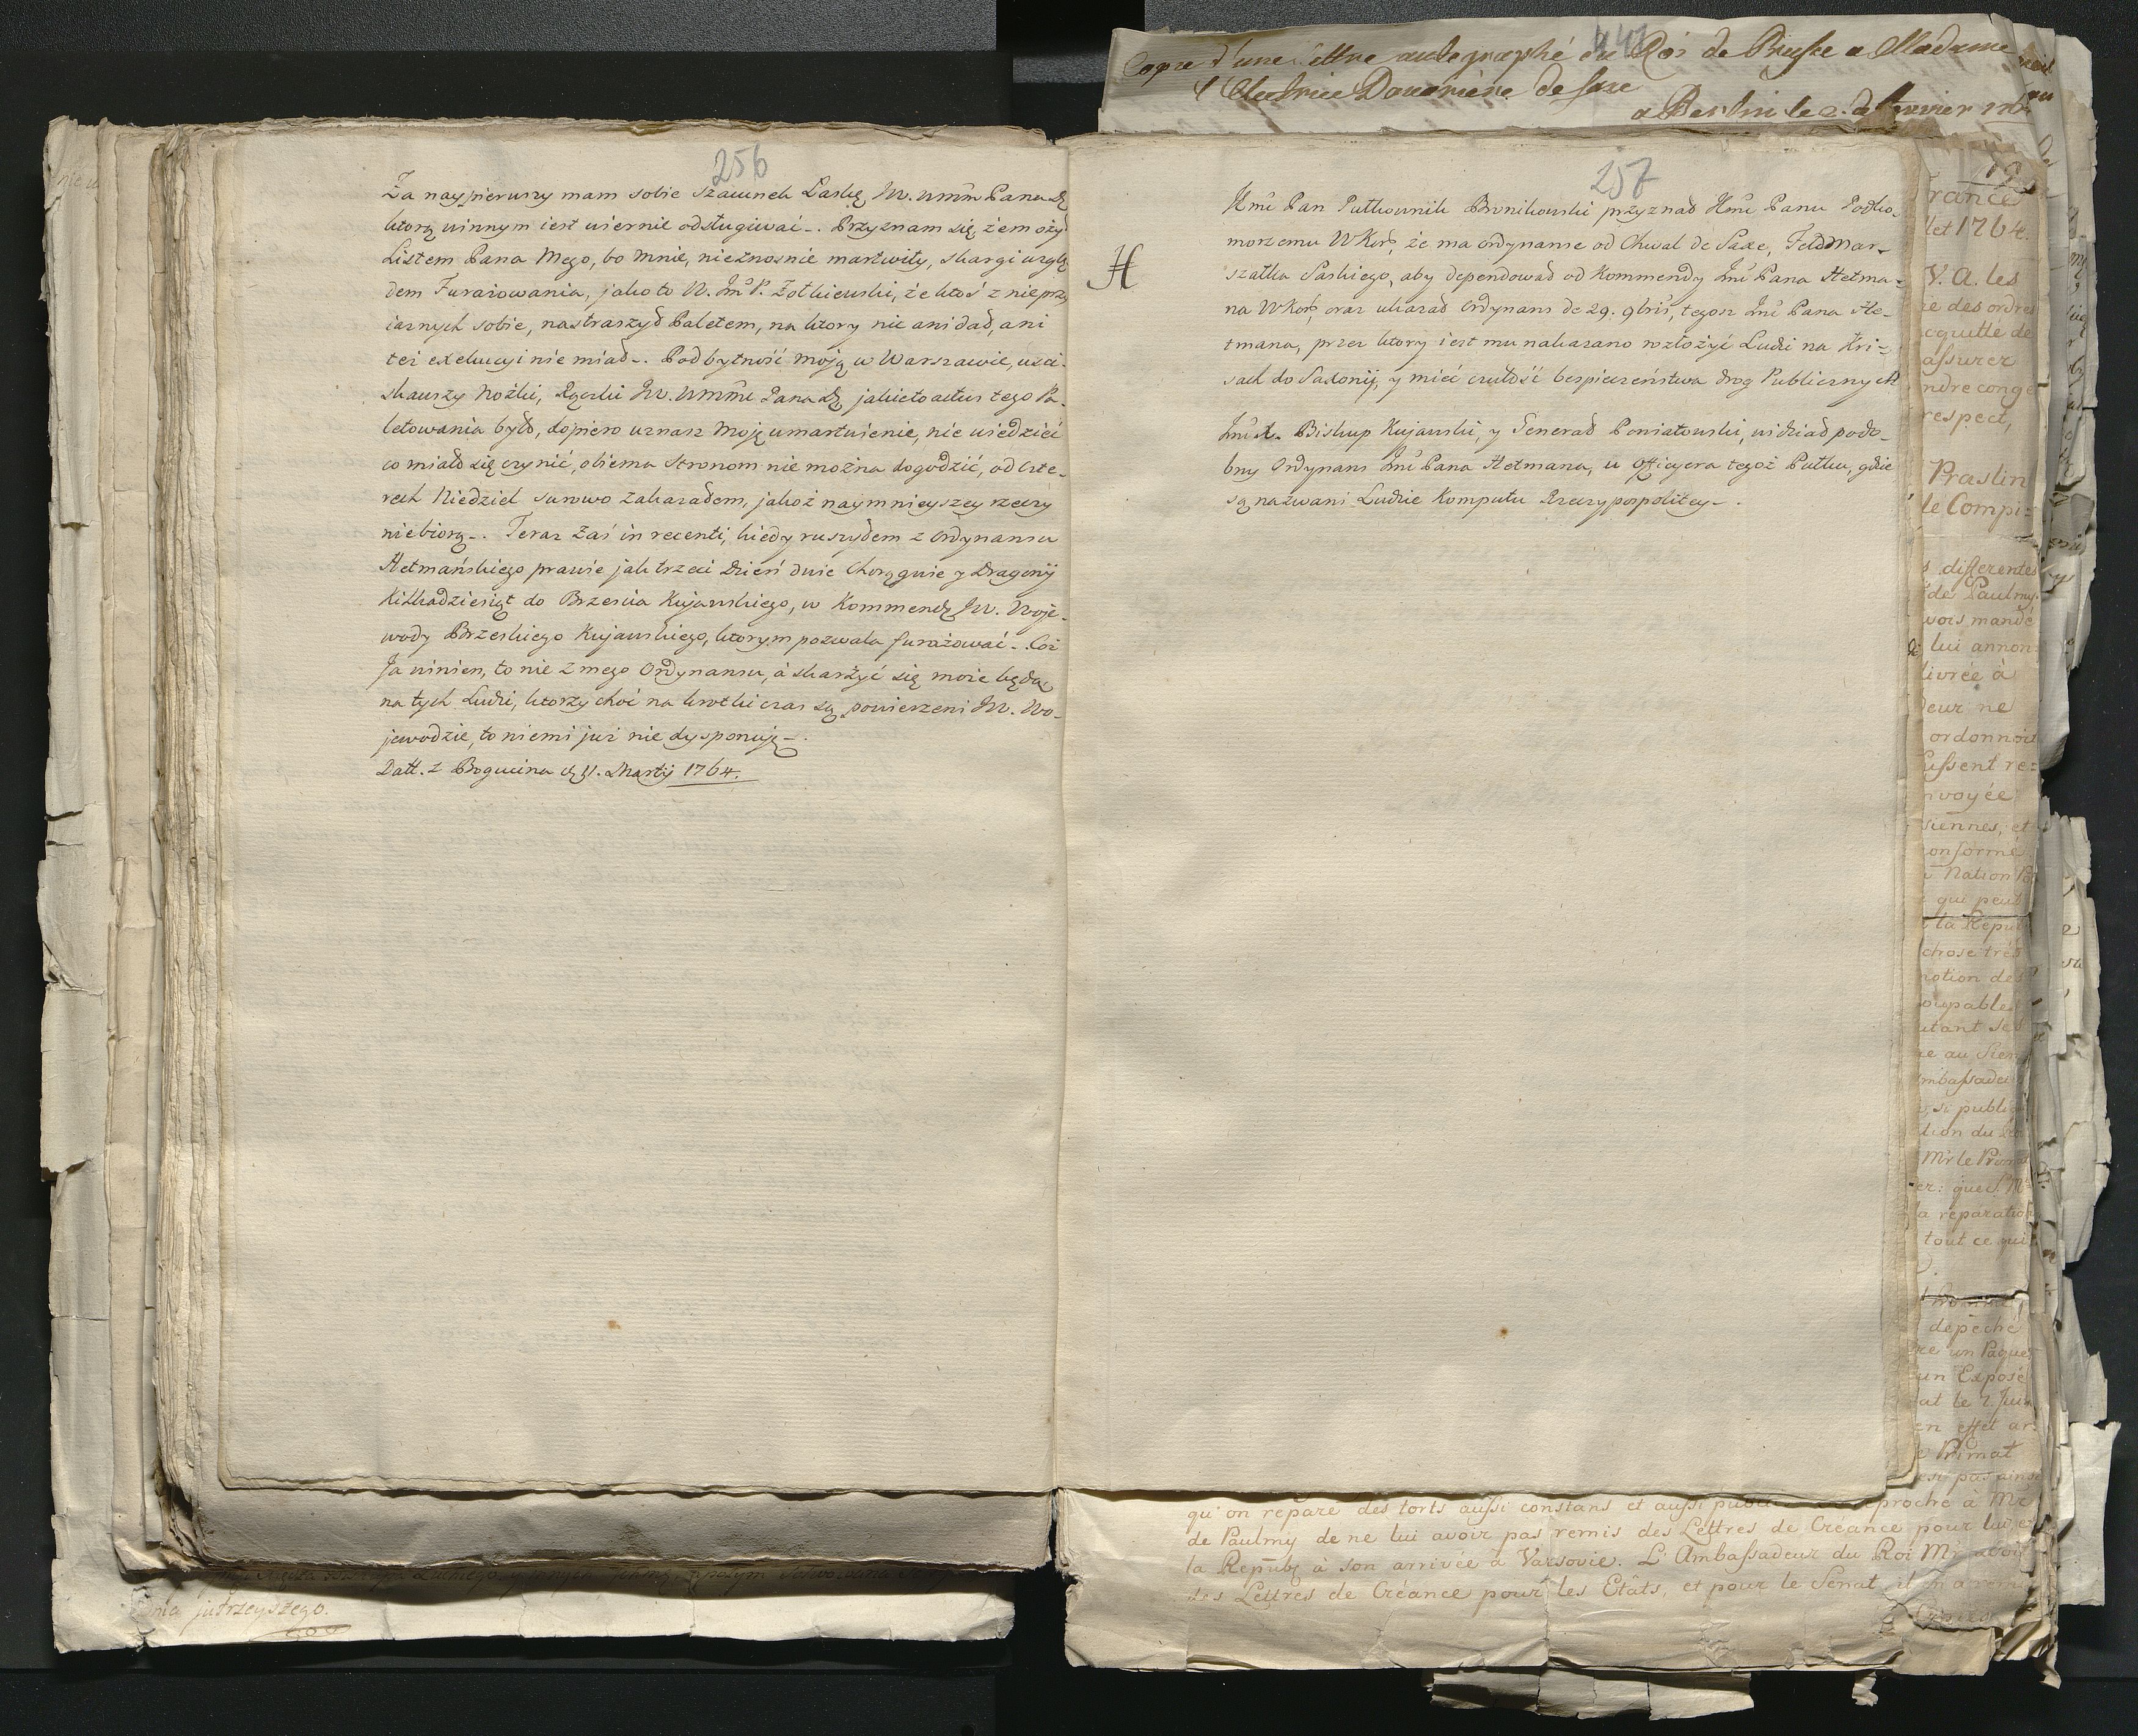 256
Za naypierwszy mam sobie szacunek Łaskę JW. WMM Pana Dz
ktorą winnym iest wiernie odsługiwać. Przyznam się, żem ożył
Listem Pana Mego, bo mnie, nieznosnie martwiły, skargi wzglę-
dem Furażowania, jako to W. JmP. Żołkiewski, że ktoś z nieprzy
iaznych sobie, nastraszył Paletem, na ktory nic ani dał, ani
też exekucyi nie miał. Pod bytność moją w Warszawie, uści-
skawszy Nożki, Rączki JW. WMM Pana Dz jakieto actus tego Pa-
letowania był, dopiero uznasz Moję umartwienie, nie wiedzieć
co miało się czynić, obiema Stronom nie można dogodzić, od czte-
rech Niedziel surowo Zakazałem, jakoż naymnieyszey rzeczy
niebiorą. Teraz Zaś in recenti, kiedy ruszyłem z Ordynansu
Hetmańskiego prawie jak trzeci Dzień dwie Chorągwie y Dragonij
Kilkadziesiąt do Brzescia Kujawskiego, w Kommendę JW. Woje-
wody Brzeskiego Kujawskiego, ktorym pozwala furażować. Coż
Ja winien, to nie z mego Ordynansu, à skarżyć się może będą
na tych Ludzi, ktorzy choć na krotki czas są powierzeni JW. Wo-
jewodzie, to niemi już nie dysponuję.
Datt. z Bogucina d. 11. Martij 1764.
257
H
Jmć Pan Pułkownik Bronikowski przyznał Jmć Panu Podko-
morzemu WKor, że ma ordynanse od Chval de Saxe, FeldMar-
szałka Saskiego, aby dependował od Kommendy Jmć Pana Hetma-
na WKor, oraz ukazał Ordynans de 29. 9bris, tegoż Jmć Pana He-
tmana, przez ktory iest mu nakazano rozłożyć Ludzi na Kri-
sach do Saxonij, y mieć czułość bespieczeństwa drog Publicznych
Jmć X. Biskup Kujawski, y Generał Poniatowski, widział podo-
bny Ordynans Jmć Pana Hetmana, u Officyera tegoż Pułku, gdzie
są nazwani Ludzie Komputu Rzeczypospolitey.
Copie d'une lettre autographé du Roi de Prusse a Madame
l'Electrice Douariere de saxe
a Berlin le
France
let 1764.
V. A. les
re des ordres
cquitté de
assurer
ndre congé
respect,
Praslin
le Compi=
s differentes
de Paulmy.
vois mandé
lui annon
livrée à
eur ne
ordonnoit
ussent re=
nvoyée
siennes, et
onformé
Nation
qui peut
la Repub
chose très
notion des
oupables
utant
au Sien
mbassade
si publi
tion du
Mr le Prima
er: que S. M
la réparation
tout ce qui
depêché
un Paquet
un Exposé
at le 7. Juin
en effet ar
Primat
pas ains
qu'on repare des torts aussi constans et aussi reproche à Mr
de Paulmy de ne lui avoir pas remis des Lettres de Créance pour lui et
la Repub à son arrivée à Varsovie. L'Ambassadeur du Roi Mr avoit
des Lettres de Créance pour les Etâts, et pour le Senat, il
nia jutrzeyszego.